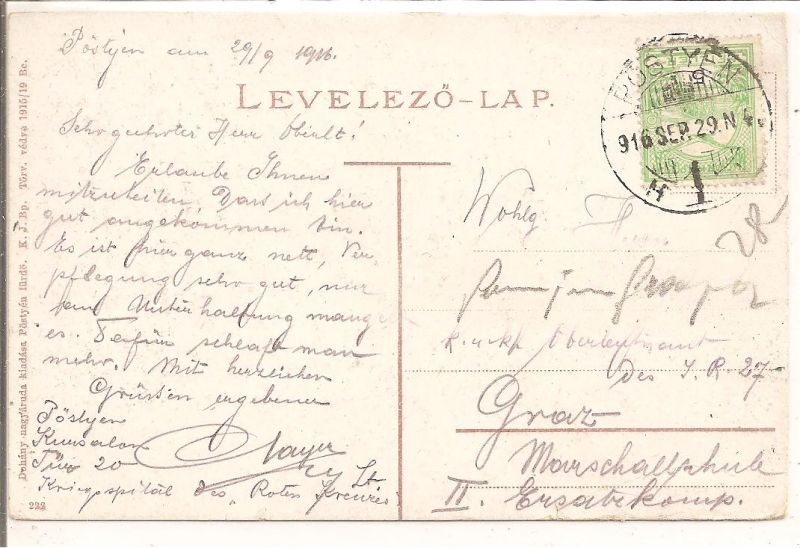 Pöstyen am 29/9 1916.
LEVELEZŐ-LAP.
Sehrgeehrter Herr Oberlt!
Erlaube Ihnen
mitzuteilen Dass ich hier
gut angekommen bin.
Es ist hier ganz nett, Ver
pflegung sehr gut, nur
an Unterhaltung mangelt
es. Dafür schlaft man
mehr. Mit herzlichen
Grüssen ergebener
Mayer
Lt
Pöstyen
Kursalon
Tür 20
Kriegsspital des "Roten Kreuzes"
PÖSTYÉN
916 SEP. 29. N 4
28
Wohlg
Herrn
k.u.k. Oberleutnant
des I.R. 27
Graz
Marschallschule
II. Ersatzkomp.
Dohány nagyáruda kiadása Pöstyén fürdő. K. J. Bp. Törv. védve 1915/19 Be.
222